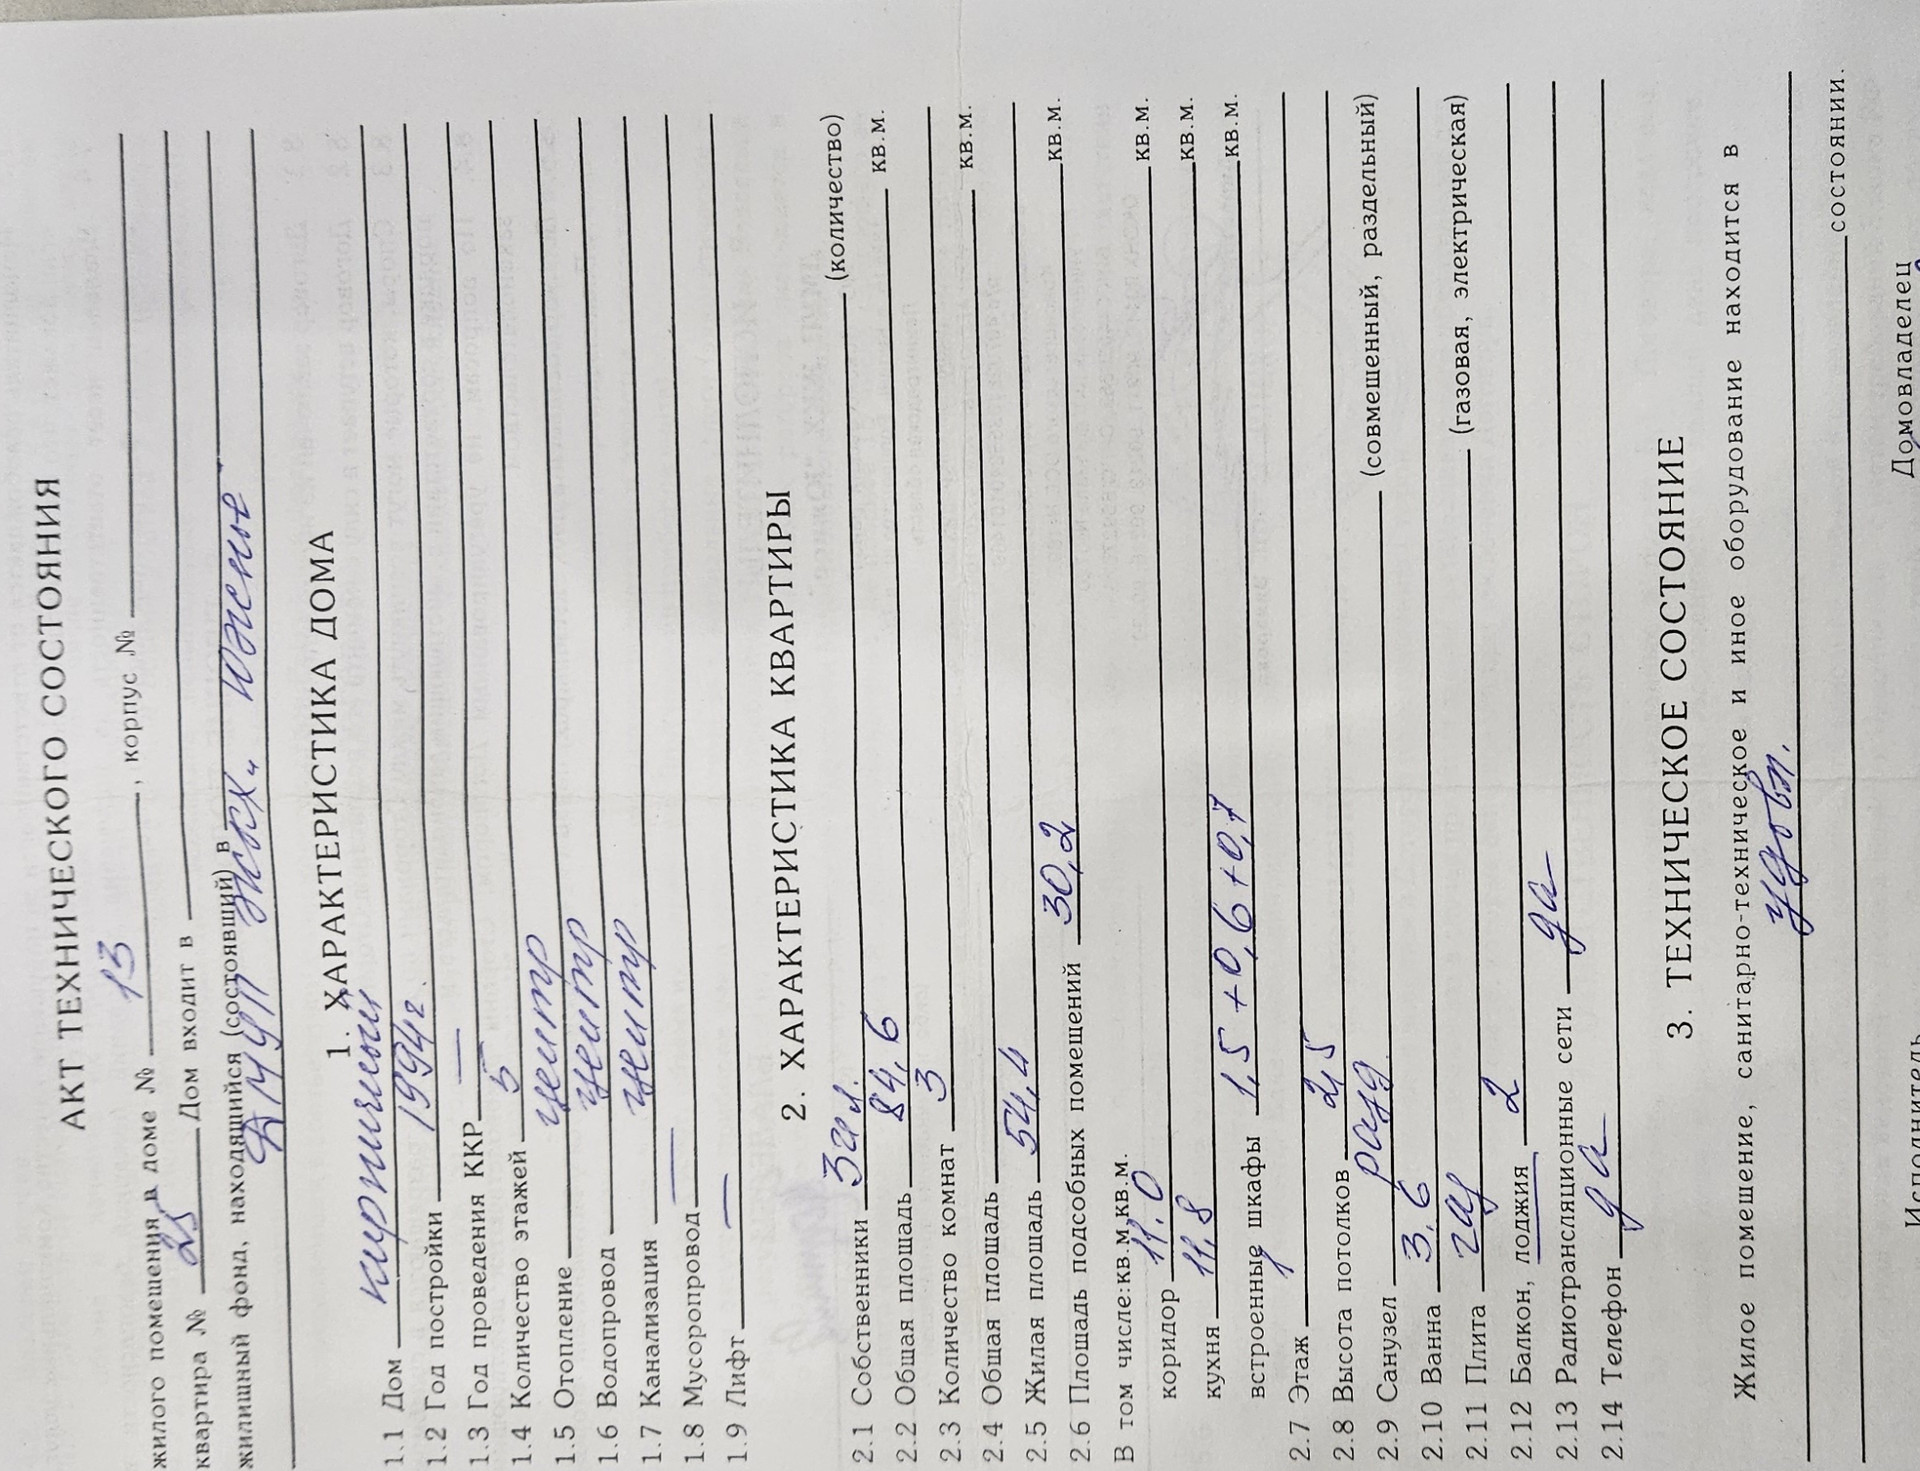 АКТ ТЕХНИЧЕСКОГО СОСТОЯНИЯ
жилого помещения в доме № 13, корпус №
квартира № 25 Дом входит в
жилищный фонд, находящийся (состоявший) в
ДМУП ЖКХ „ Южене
1. ХАРАКТЕРИСТИКА ДОМА
1.1 Дом кирпичный
1.2 Год постройки 1994г.
1.3 Год проведения ККР —
1.4 Количество этажей 5
1.5 Отопление центр
1.6 Водопровод центр
1.7 Канализация центр
1.8 Мусоропровод —
1.9 Лифт —
2. ХАРАКТЕРИСТИКА КВАРТИРЫ
2.1 Собственники 3чел. (количество)
2.2 Общая площадь 84,6 кв.м.
2.3 Количество комнат 3
2.4 Общая площадь кв.м.
2.5 Жилая площадь 54,4
2.6 Площадь подсобных помещений 30,2 кв.м.
В том числе:кв.м,кв.м.
коридор 11.0 кв.м.
кухня 11,8 кв.м.
встроенные шкафы 1,5 + 0,6 + 0,7 кв.м.
2.7 Этаж 1
2.8 Высота потолков 2,5
2.9 Санузел разд (совмещенный, раздельный)
2.10 Ванна 3.6
2.11 Плита газ (газовая, электрическая)
2.12 Балкон, лоджия 2
2.13 Радиотрансляционные сети да
2.14 Телефон да
3. ТЕХНИЧЕСКОЕ СОСТОЯНИЕ
Жилое помещение, санитарно-техническое и иное оборудование находится в
удовл.
состоянии.
Исполнитель Домовладелец